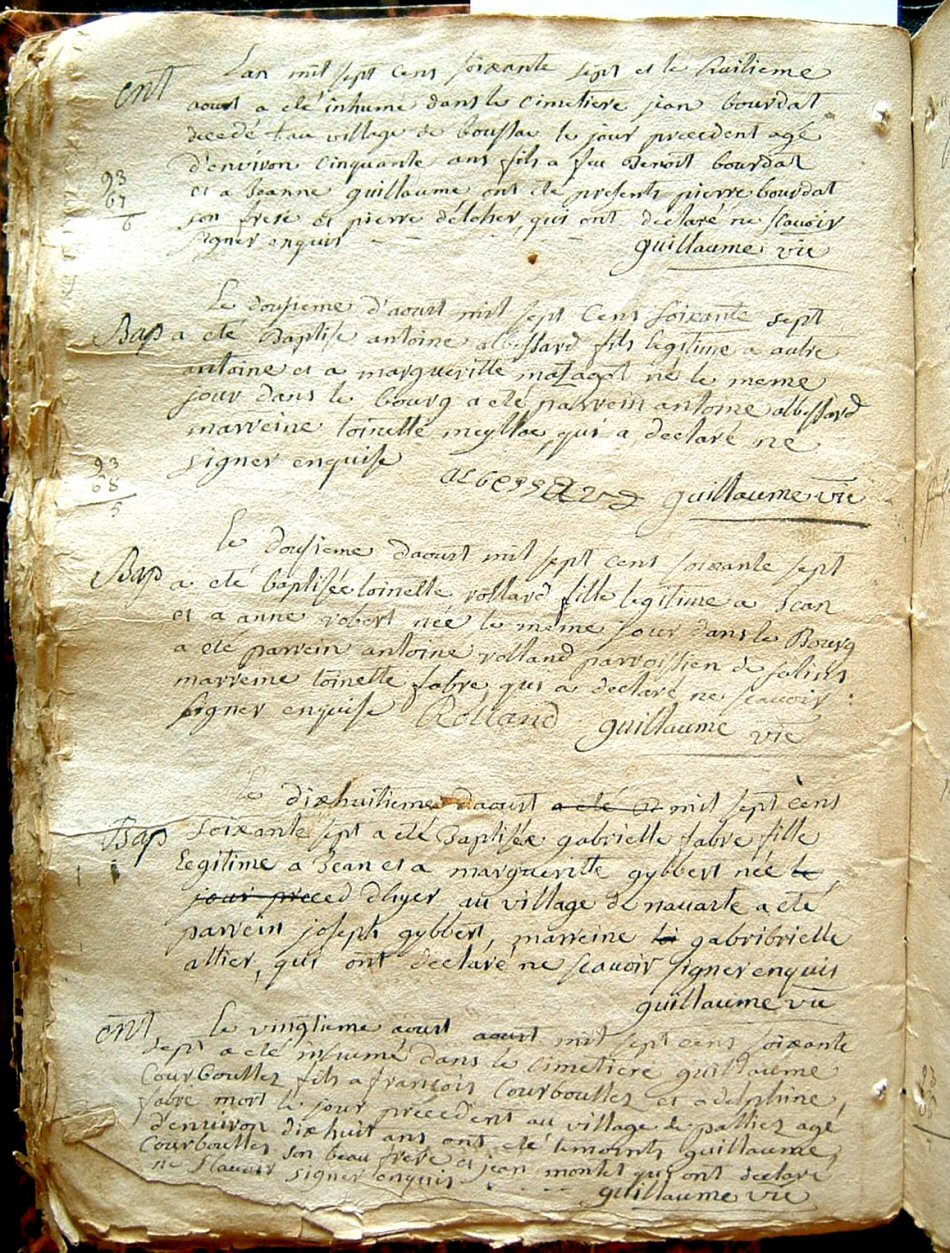 ent
Lan mil sept cens soixante sept et le huitieme
aoust a eté inhumé dans le cimetiere jean bourdat
decedé au village de boussac le jour precedent agé
d'environ cinquante ans fils a feu Benoit bourdat
et a Jeanne guillaume ont eté presents pierre bourdat
son frere et pierre delcher, qui ont declaré ne scavoir
signer enquis
guillaume vic
93
67
6
Le dousieme d'aoust mil sept cens soixante sept
Bap
a eté Baptisé antoine albessard fils legitime a autre
antoine et a margueritte matagot né le meme
jour dans le bourg a eté parrein antoine albessard
marreine toinette meyllac, qui a declaré ne
signer enquise
albessard guillaume vic
93
68
5
le dousieme daoust mil sept cens soixante sept
Bap
a eté baptisée toinette rolland fille legitime a Jean
et a anne robert née le même jour dans le Bourg
a eté parrein antoine rolland parroissien de salins
marreine toinette fabre qui a declaré ne scavoir
signer enquise Rolland guillaume vic
le dixhuitieme daoust a eté mil sept cens
Bap
soixante sept a eté Baptisée gabrielle fabre fille
legitime a Jean et a margueritte gybbert née le
jour preced dhyer au village de navaste a eté
parrein joseph gybbert, marreine gabribrielle
altier, qui ont declaré ne scavoir signer enquis
guillaume vic
ent
le vingtieme aoust aoust mil sept cens soixante
sept a eté inhumé dans le cimetiere guillaume
Courbouttez fils a françois Courbouttez et a delphine
fabre mort le jour precedent au village de palliez agé
d'environ dixhuit ans ont eté temoints guillaume
Courbouttez son beau frere et jean montet qui ont declaré
ne scavoir signer enquis
guillaume vic